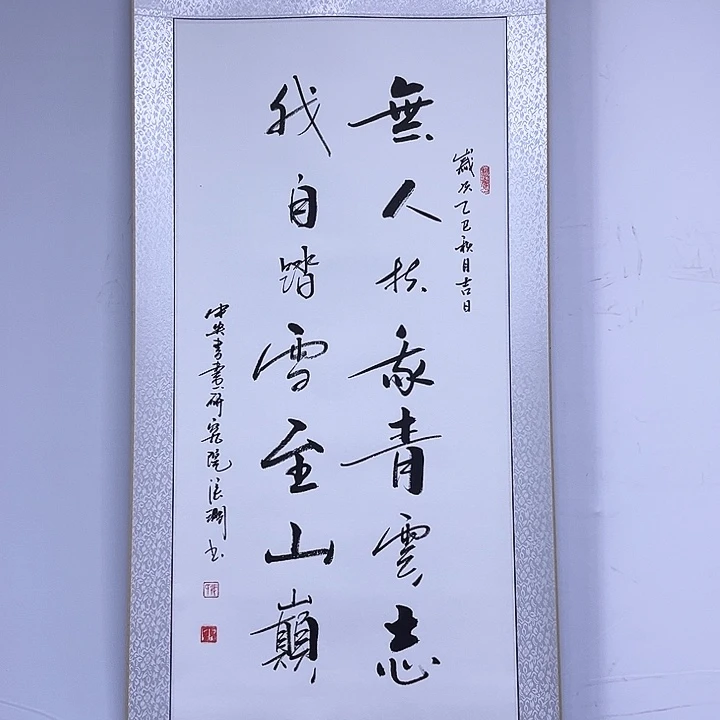 歲次乙巳秋月吉日
無人扶我青雲志
我自踏雪至山巔
中央書畫研究院